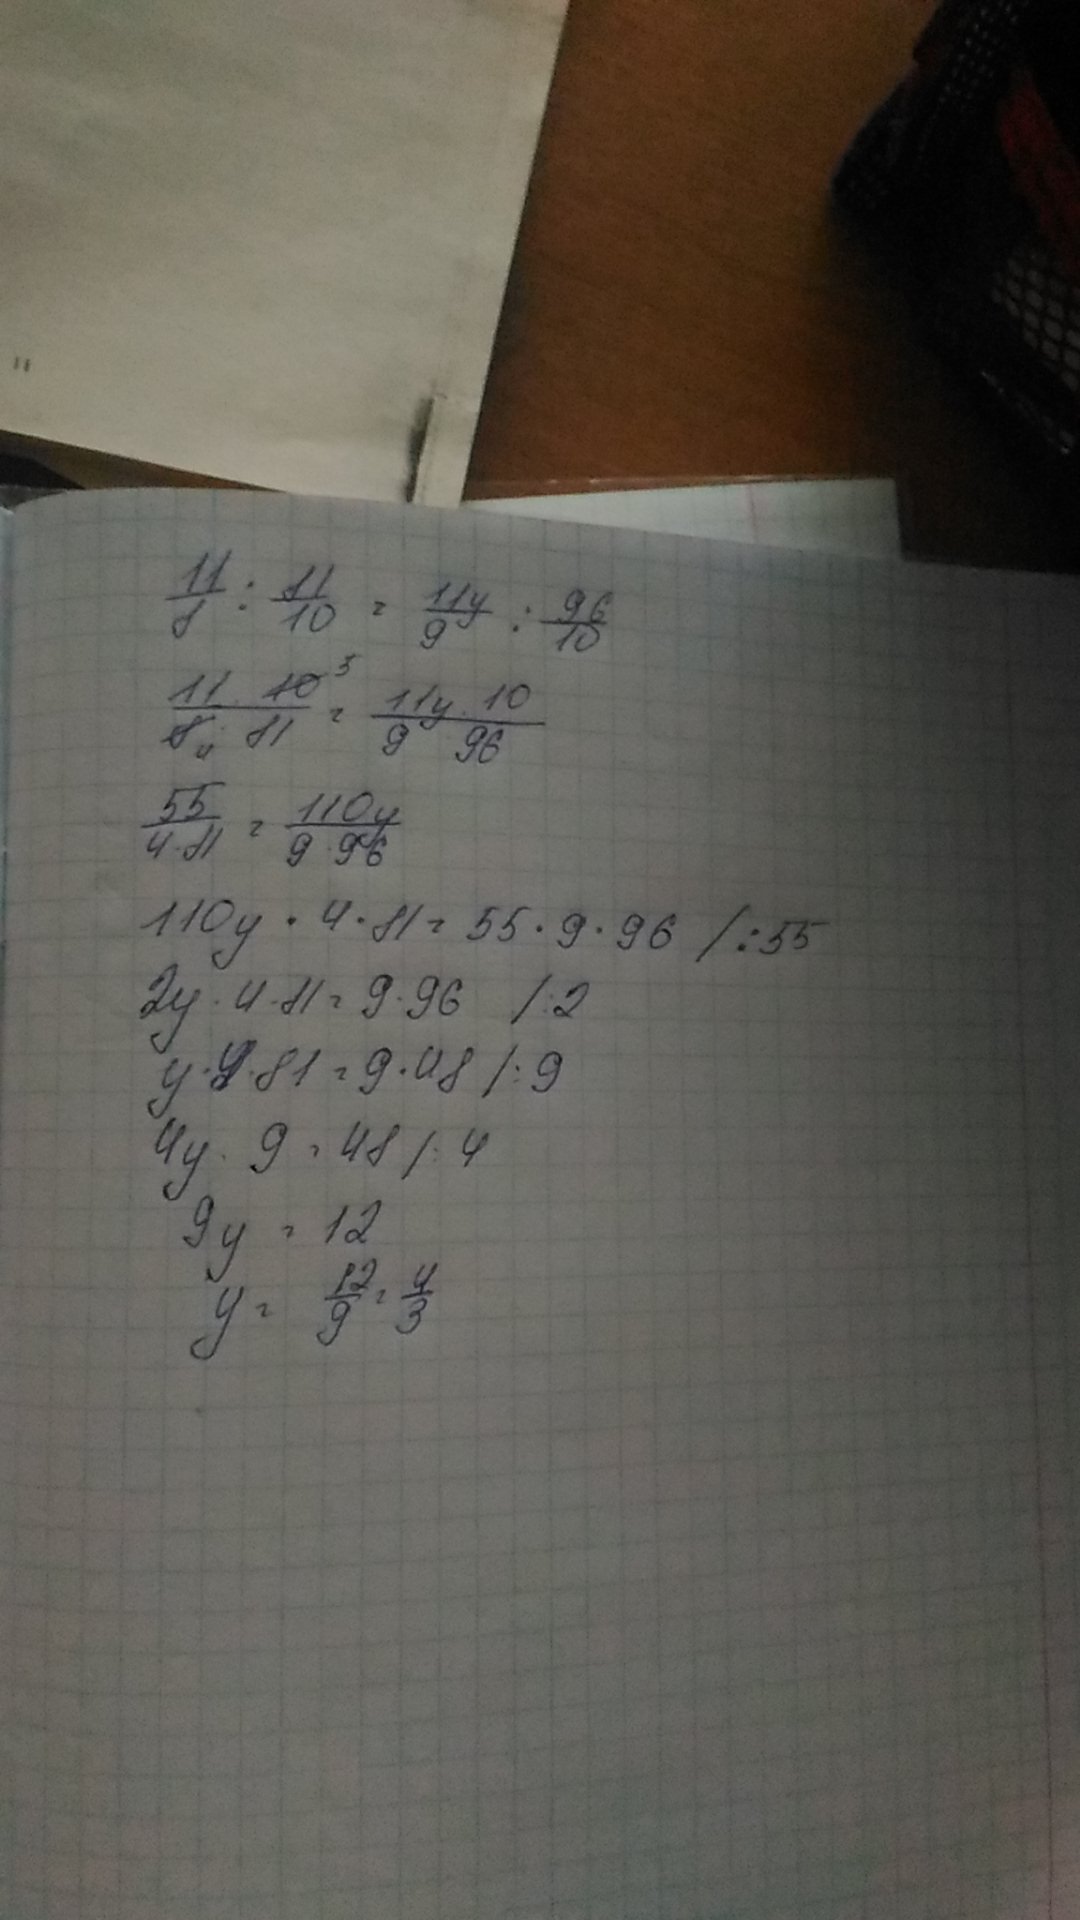 11/8 : 81/10 = 11y/9 : 96/10
11 · 10 5 / 8 4 · 81 = 11y · 10 / 9 96
55/4·81 = 110y/9·96
110y · 4 · 81 = 55 · 9 · 96 / :55
2y · 4 · 81 = 9 · 96 / :2
y · 4 · 81 = 9 · 48 / :9
4y · 9 = 48 / : 4
9y = 12
y = 12/9 = 4/3